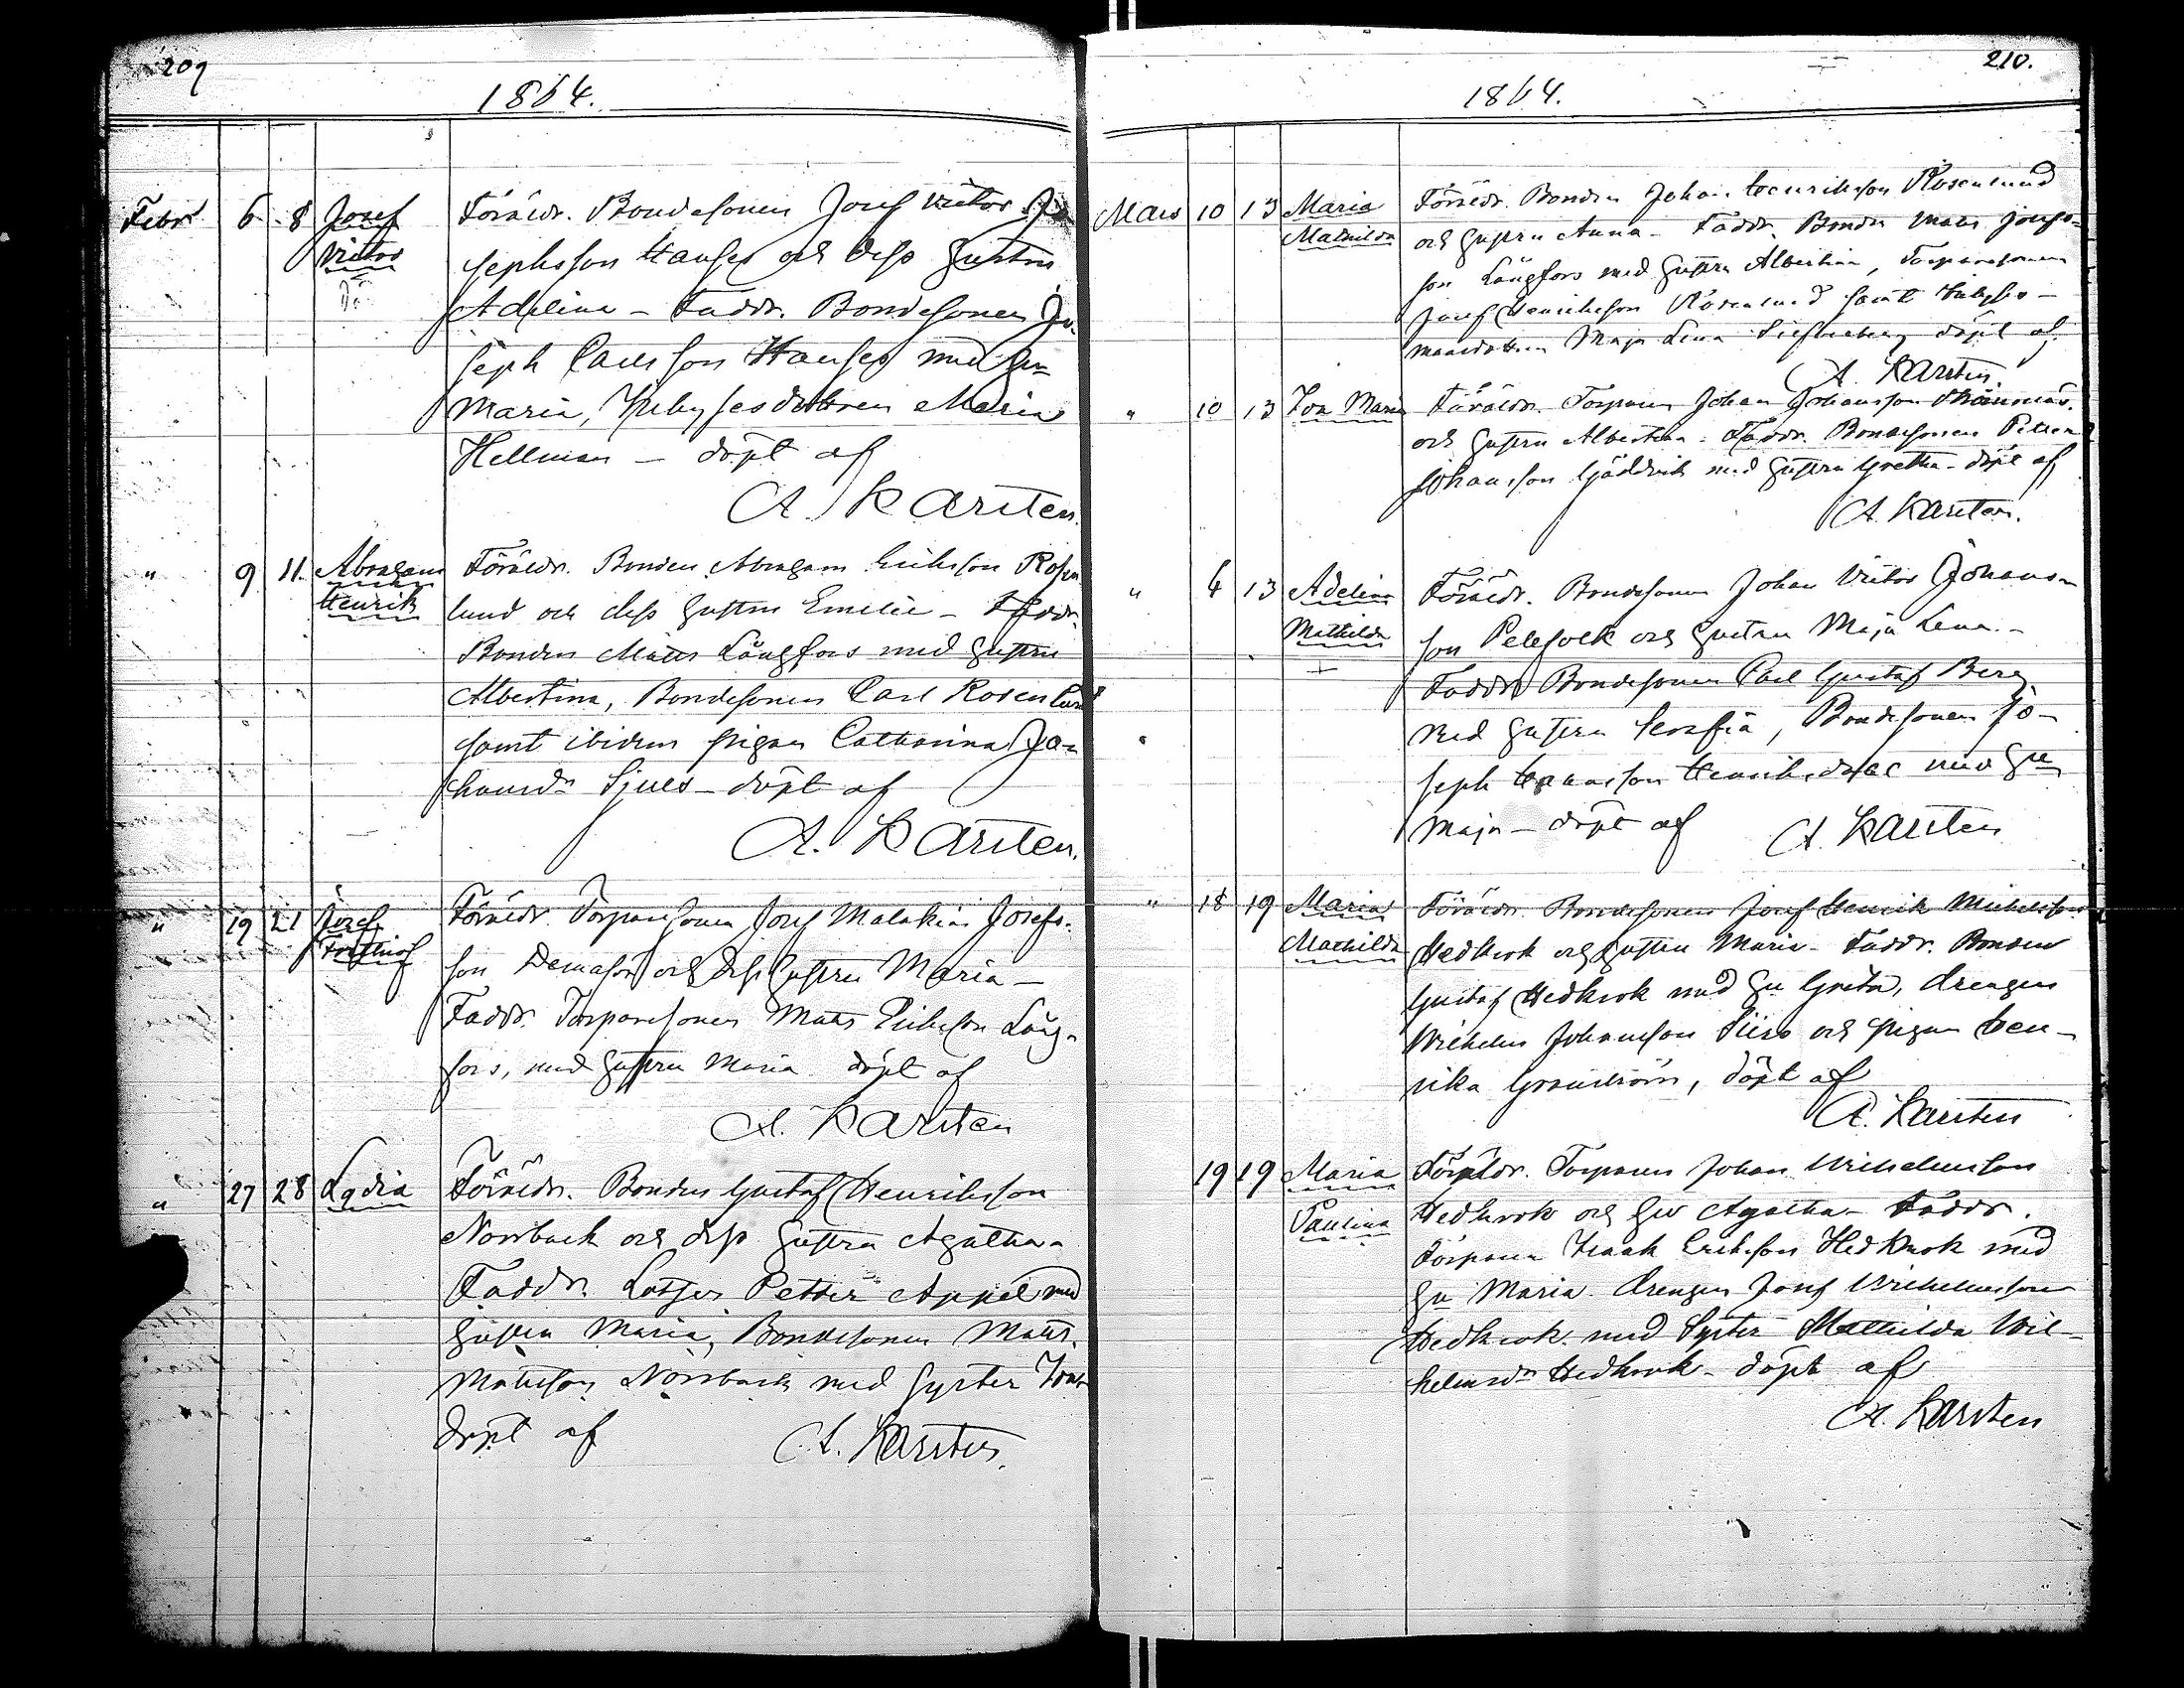 209
1864.
Febr 6 8 Josef Föräldr. Bondesonen Josef Victor Jo
Victor sephsson Hanses och dess Hustru
Adelina – Faddr. Bondesonen Jo
seph Carlsson Hanses med Hu
Maria, dottren Maria
Hellman – döpt af
A. Karsten.
" 9 11. Abraham Föräldr. Bonden Abraham Eriksson Rosen
Henrik lund och dess Hustru Emelie – Faddr.
Bonden Matts Långfors med Hustru
Albertina, Bondesonen Carl Rosenlund
samt ibidem pigan Catharina Jo-
hansdr Sjuls – döpt af
A. Karsten.
" 19 21 Josef Föräldr. Torparesonen Josef Malakias Josefs-
Frithiof son och dess Hustru Maria –
Faddr. Torparesonen Matts Eriksson Lång-
fors, med Hustru Maria döpt af
A. Karsten
" 27 28 Lydia Föräldr. Bonden Gustaf Henriksson
Norrback och dess Hustru Agatha –
Faddr. Lotsen Petter Appel med
Hustru Maria, Bondesonen Matts
Mattsson Norrback med Syster
döpt af A. Karsten.
210.
1864.
Mars 10 13 Maria Föräldr. Bonden Johan Henriksson Rosenlund
Mathilda och Hustru Anna – Faddr. Bonden Matts
son Långfors med Hustru Albertina, Torparesonen
Josef Henriksson Rosenlund samt
Maja Lena döpt af
A. Karsten.
" 10 13 Ida Maria Föräldr. Torparen Johan Johansson
och Hustru Albertina – Faddr. Bondesonen Petter
Johansson med Hustru Gretha – döpt af
A. Karsten.
" 6 13 Adelina Föräldr. Bondesonen Johan Victor Johans-
Mathilda son Pelefolk och Hustru Maja Lena –
Faddr. Bondesonen Carl Gustaf Berg
med Hustru Serafia, Bondesonen Jo-
seph med Hu
Maja – döpt af A. Karsten
" 18 19 Maria Föräldr. Bondesonen Josef Henrik Michelsson
Mathilda Hedkrok och Hustru Maria – Faddr. Bonden
Gustaf Hedkrok med Hu Greta, drengen
Wilhelm Johansson och pigan Hen-
rika Granström, döpt af
A. Karsten
19 19 Maria Föräldr. Torparen Johan Wilhelmsson
Paulina Hedkrok och Hu Agatha – Faddr.
Torparen Isaak Eriksson Hedkrok med
Hu Maria. drengen Josef Wilhelmsson
Hedkrok med Syster Mathilda Wil-
helmsdr Hedkrok – döpt af
A. Karsten